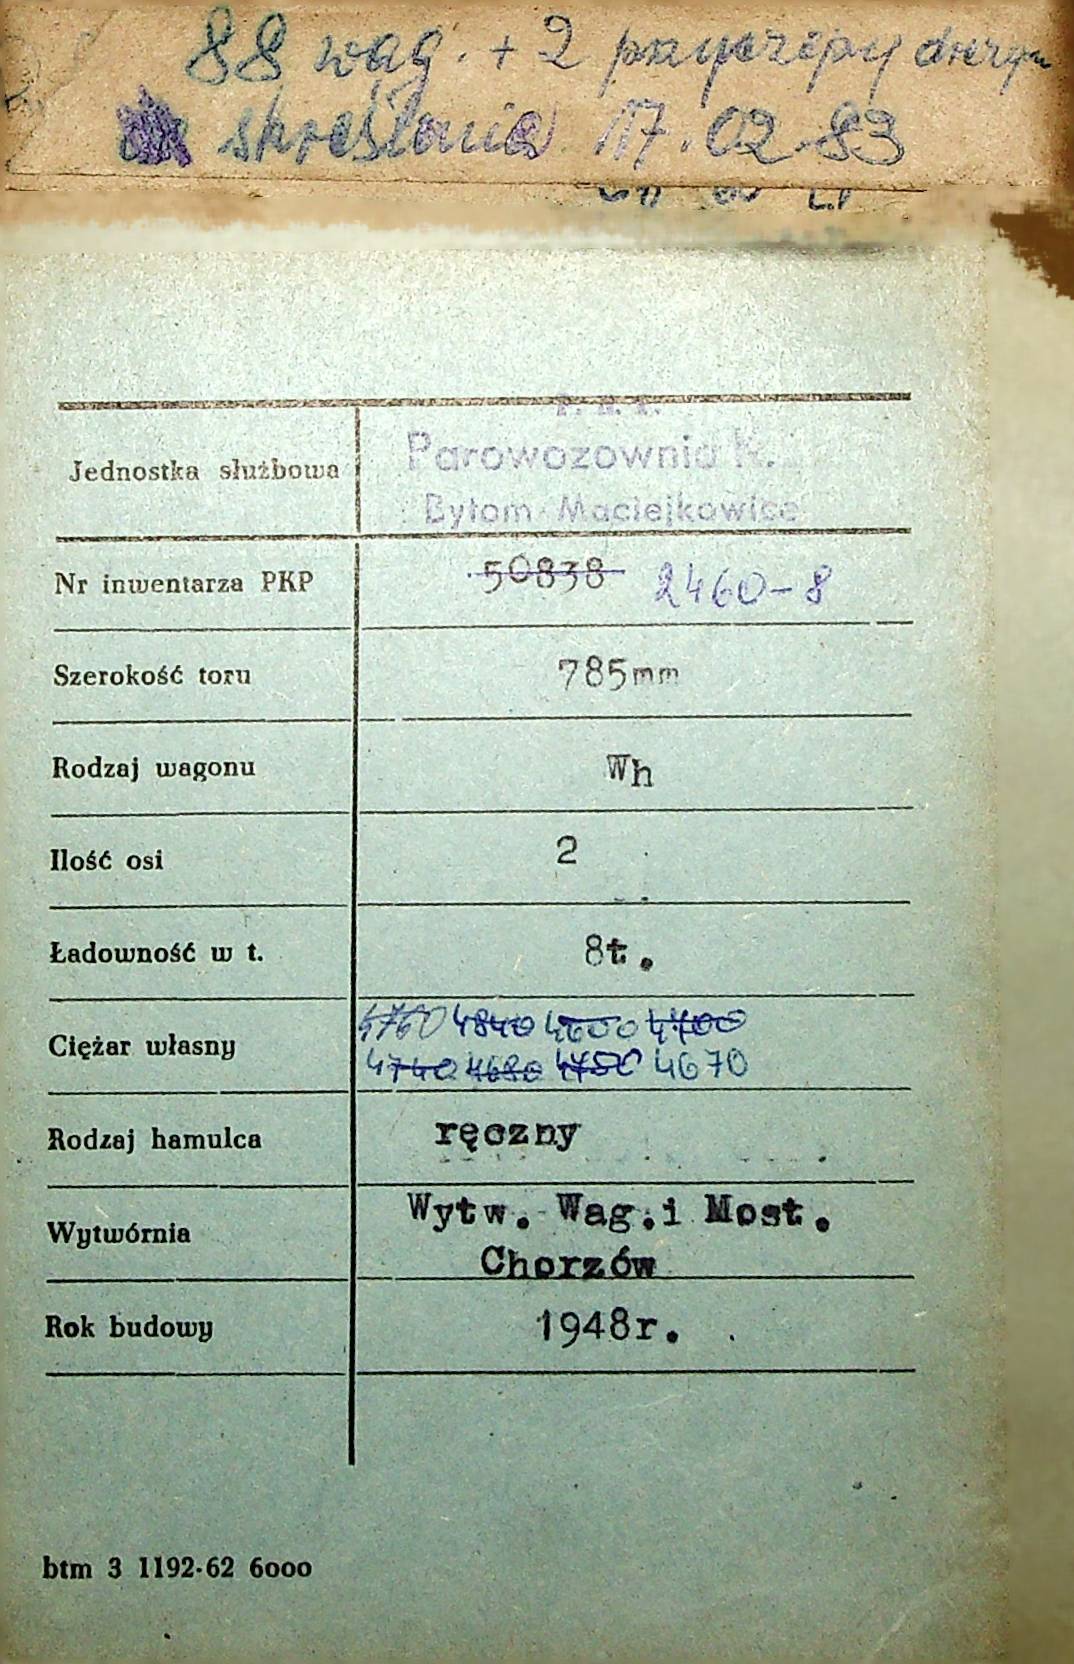 88 wag. + 2 przyczepy drezyn
skreślenie 17.02.83
Jednostka służbowa
P. K. P.
Parowozownia K.
Bytom Maciejkowice
Nr inwentarza PKP 50838 2460-8
Szerokość toru 785mm
Rodzaj wagonu Wh
Ilość osi 2
Ładowność w t. 8t.
Ciężar własny 4760 4840 4600 4700
4740 4680 4750 4670
Rodzaj hamulca ręczny
Wytwórnia Wytw. Wag.i Most.
Chorzów
Rok budowy 1948r.
btm 3 1192-62 6000